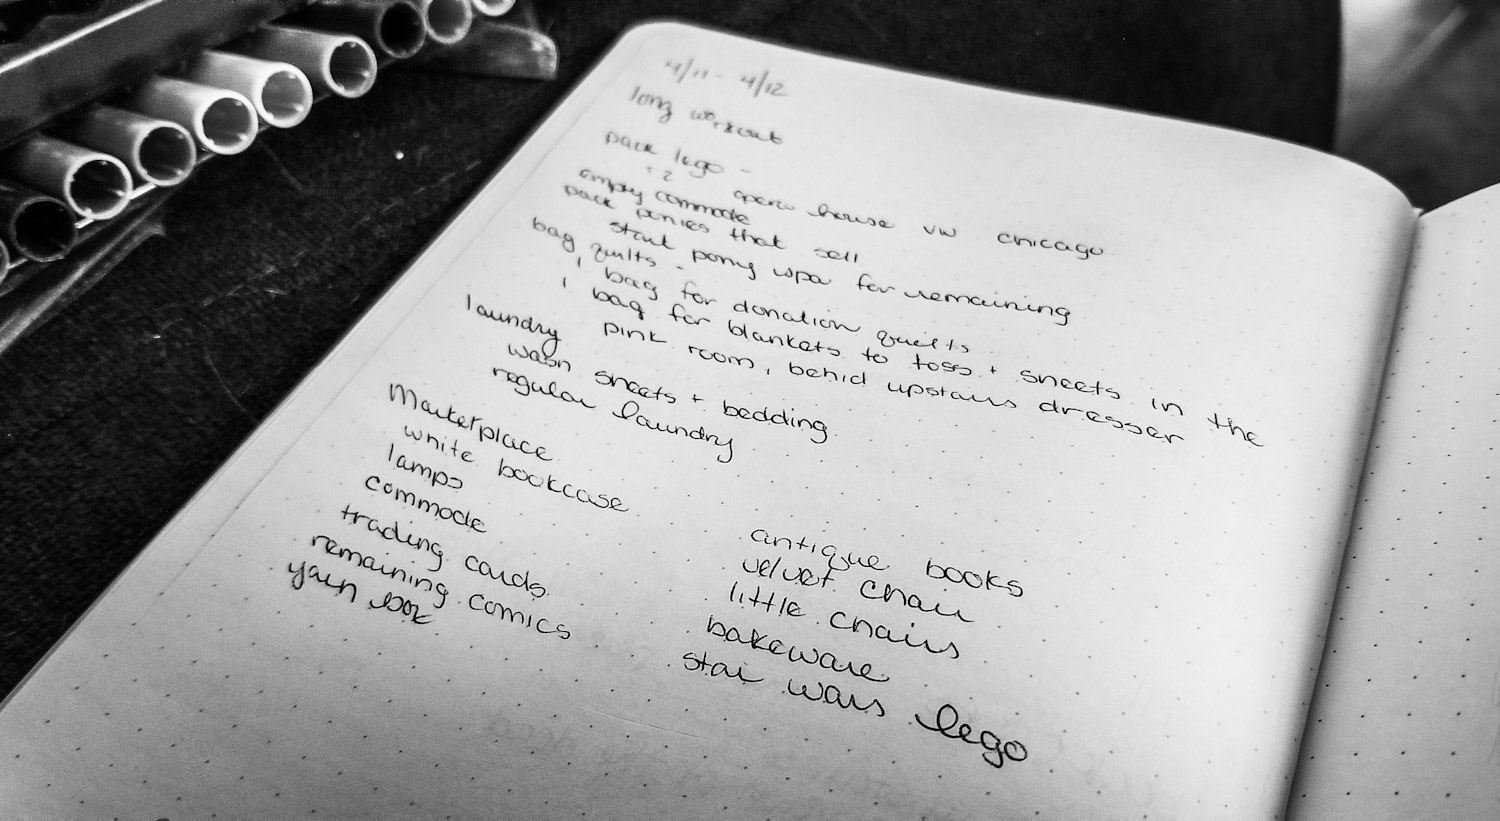 4/11 - 4/12
long workout
pack lego -
+2 opera house vw chicago
empty commode
pack ponies that sell
start pony spa for remaining
bag quilts -
1 bag for donation quilts
1 bag for blankets to toss + sheets in the
pink room, behid upstairs dresser
laundry
wash sheets + bedding
regular laundry
Marketplace
white bookcase
lamps
commode
trading cards
remaining comics
yarn box
antique books
velvet chair
little chairs
bakeware
star wars lego